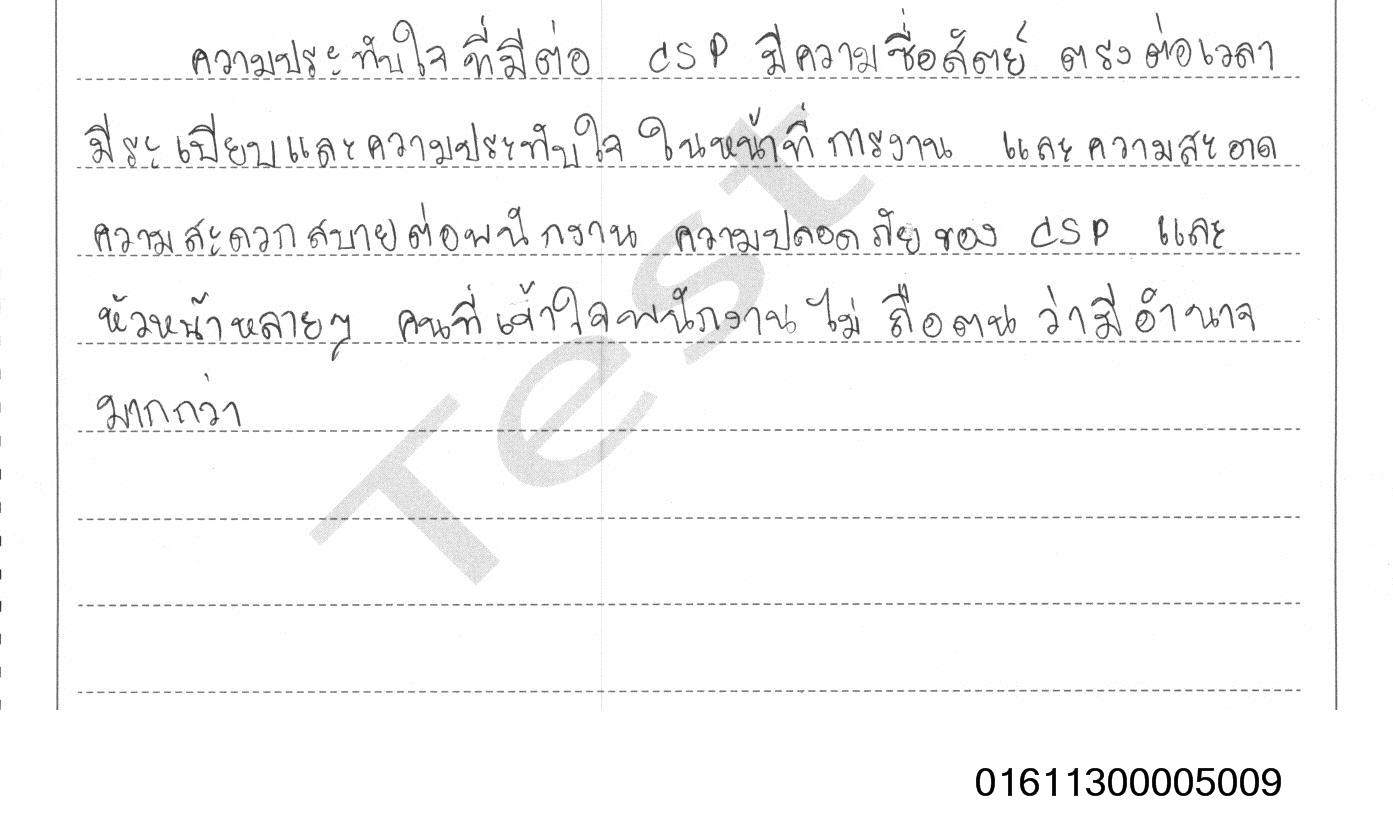 ความประทับใจที่มีต่อ CSP มีความซื่อสัตย์ ตรงต่อเวลา
มีระเบียบและความประทับใจ ในหน้าที่การงาน และความสะอาด
ความสะดวกสบายต่อพนักงาน ความปลอดภัยของ CSP และ
หัวหน้าหลายๆ คนที่เข้าใจพนักงานไม่ถือตนว่ามีอำนาจ
มากกว่า
Test
01611300005009